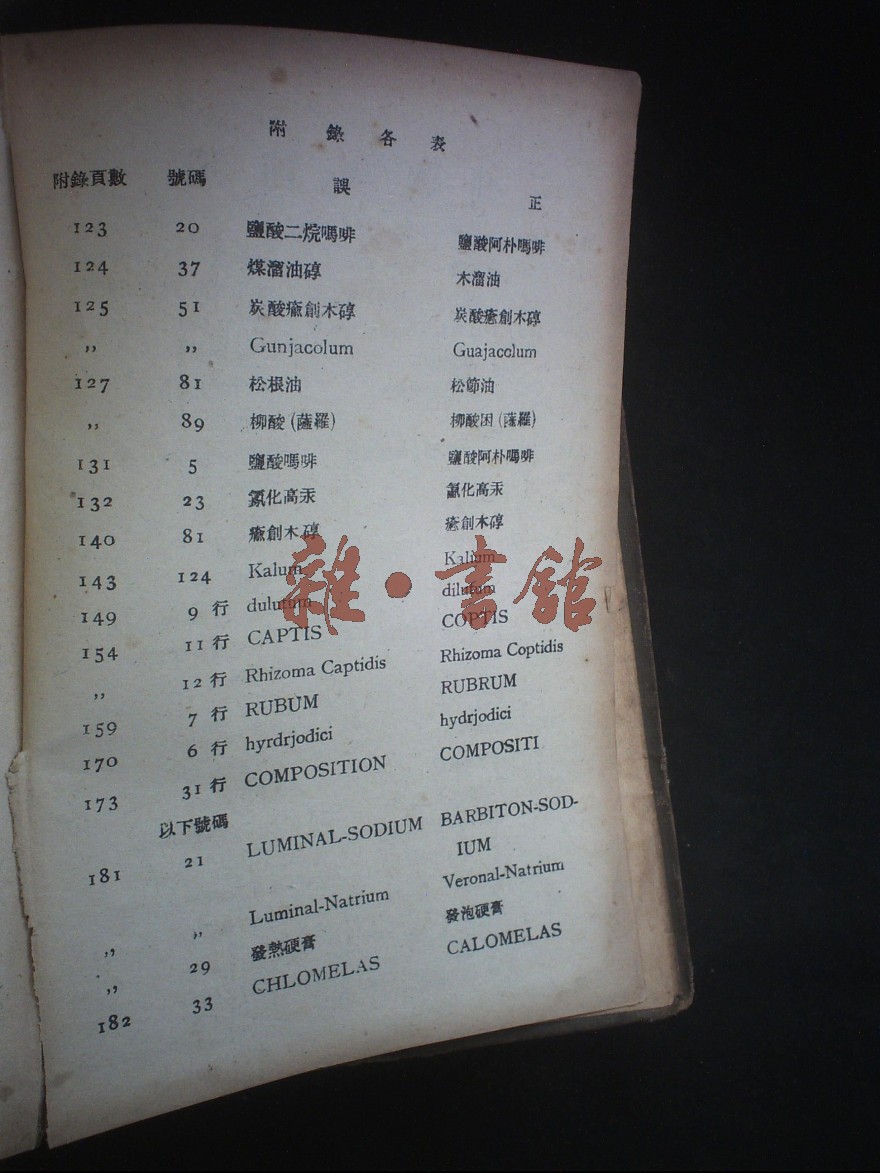 附錄各表
附錄頁數 號碼 誤 正
123 20 鹽酸二烷嗎啡 鹽酸阿朴嗎啡
124 37 煤溜油醇 木溜油
125 51 炭酸瘉創木醇 炭酸癒創木醇
,, ,, Gunjacolum Guajacolum
127 81 松根油 松節油
,, 89 柳酸(薩羅) 柳酸困(薩羅)
131 5 鹽酸嗎啡 鹽酸阿朴嗎啡
132 23 氯化高汞 氰化高汞
140 81 瘉創木醇 癒創木醇
143 124 Kalum Kalium
149 9 行 dulutum dilutum
154 11 行 CAPTIS COPTIS
,, 12 行 Rhizoma Captidis Rhizoma Coptidis
159 7 行 RUBUM RUBRUM
170 6 行 hyrdrjodici hydrjodici
173 31 行 COMPOSITION COMPOSITI
以下號碼
181 21 LUMINAL-SODIUM BARBITON-SOD-
IUM
,, ,, Luminal-Natrium Veronal-Natrium
,, 29 發熱硬膏 發泡硬膏
182 33 CHLOMELAS CALOMELAS
雜·書館